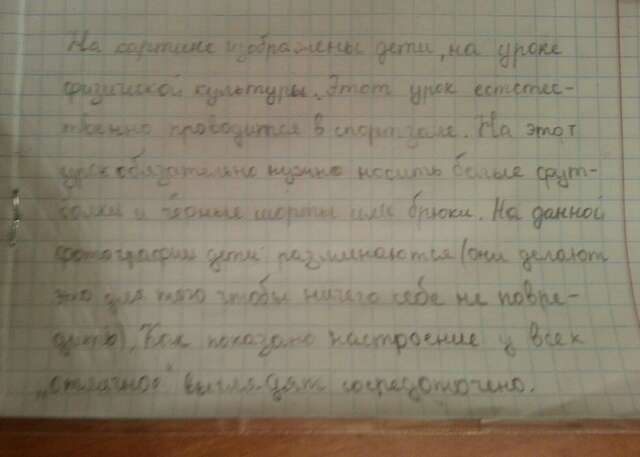 На картине изображены дети, на уроке
физической культуры. Этот урок естстес-
твенно проводится в спортзале. На этот
урок обязательно нужно носить белые фут-
болки и чёрные шорты или брюки. На данной
фотографии дети разминаются (они делают
это для того чтобы ничего себе не повре-
дить). Как показано настроение у всех
„отличное" выглядят сосредоточено.